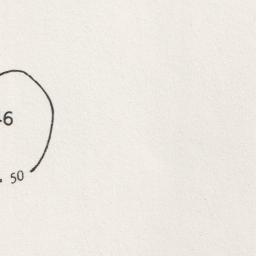 6
. 50